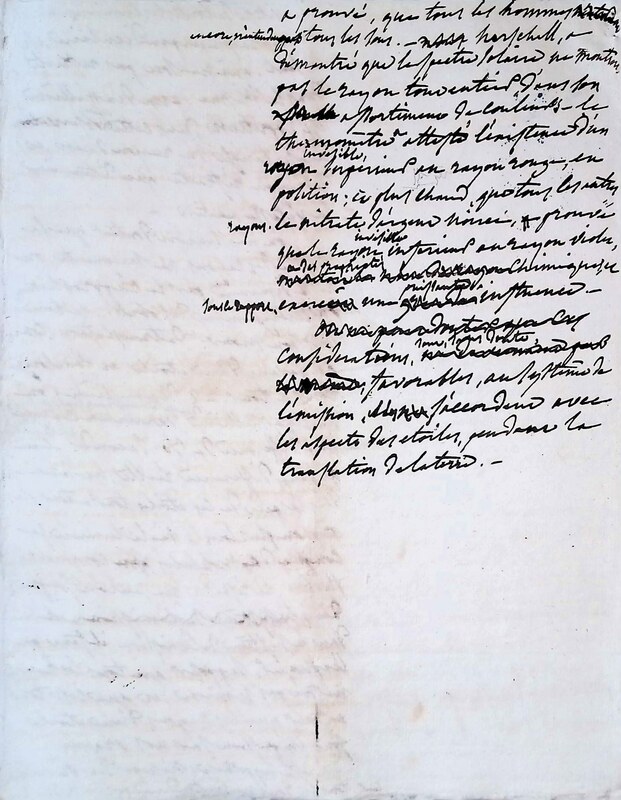 a prouvé, que tous les hommes
tous les sons. – Herschell, a
démontré que le spectre solaire ne montre
pas le rayon tout entier dans son
assortiment de couleurs – le
thermomètre atteste l'existence d'un
invisible,
rayon inférieur au rayon rouge, en
position; et plus chaud, que tous les autres
rayons. le nitrate d'argent noirci, a prouvé
invisible
que le rayon inférieur au rayon violet,
chimiques, et
sous ce rapport, exerce une influence. –
que ces
sans doute,
considérations, favorables, au système de
l'émission, s'accordent avec
les aspects des etoiles, pendant la
translation de la terre. –